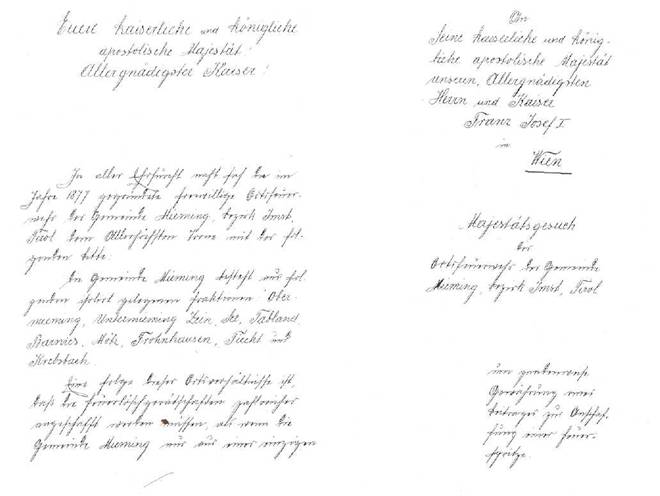 Euere kaiserliche und königliche
apostolische Majestät!
Allergnädigster Kaiser!
In aller Ehrfurcht naht sich die im
Jahre 1877 gegründete freiwillige Ortsfeuer-
wehr der Gemeinde Mieming, bezirk Imst,
Tirol dem Allerhöchsten Trone mit der fol-
genden bitte.
Die Gemeinde Mieming besteht aus fol-
genden gelegenen fraktionen Ober-
mieming, Untermieming, Zein, See, Tabland
Barwies, Mötz, Frohnhausen, Fiecht und
Krebsbach.
Eine folge dieser Ortsverhältnisse ist,
daß die feuerlöschgerätschaften zahlreicher
angeschafft werden müssen, als wenn die
Gemeinde Mieming nur aus einer einzigen
An
Seine kaiserliche und könig-
liche apostolische Majestät
unseren, Allergnädigsten
Herrn und Kaiser
Franz Josef I.
in
Wien
Majestätsgesuch
der
Ortsfeuerwehr der Gemeinde
Mieming, bezirk Imst, Tirol
um gnadenweise
Gewährung eines
betrages zur Anschaf-
fung einer feuer-
spritze.